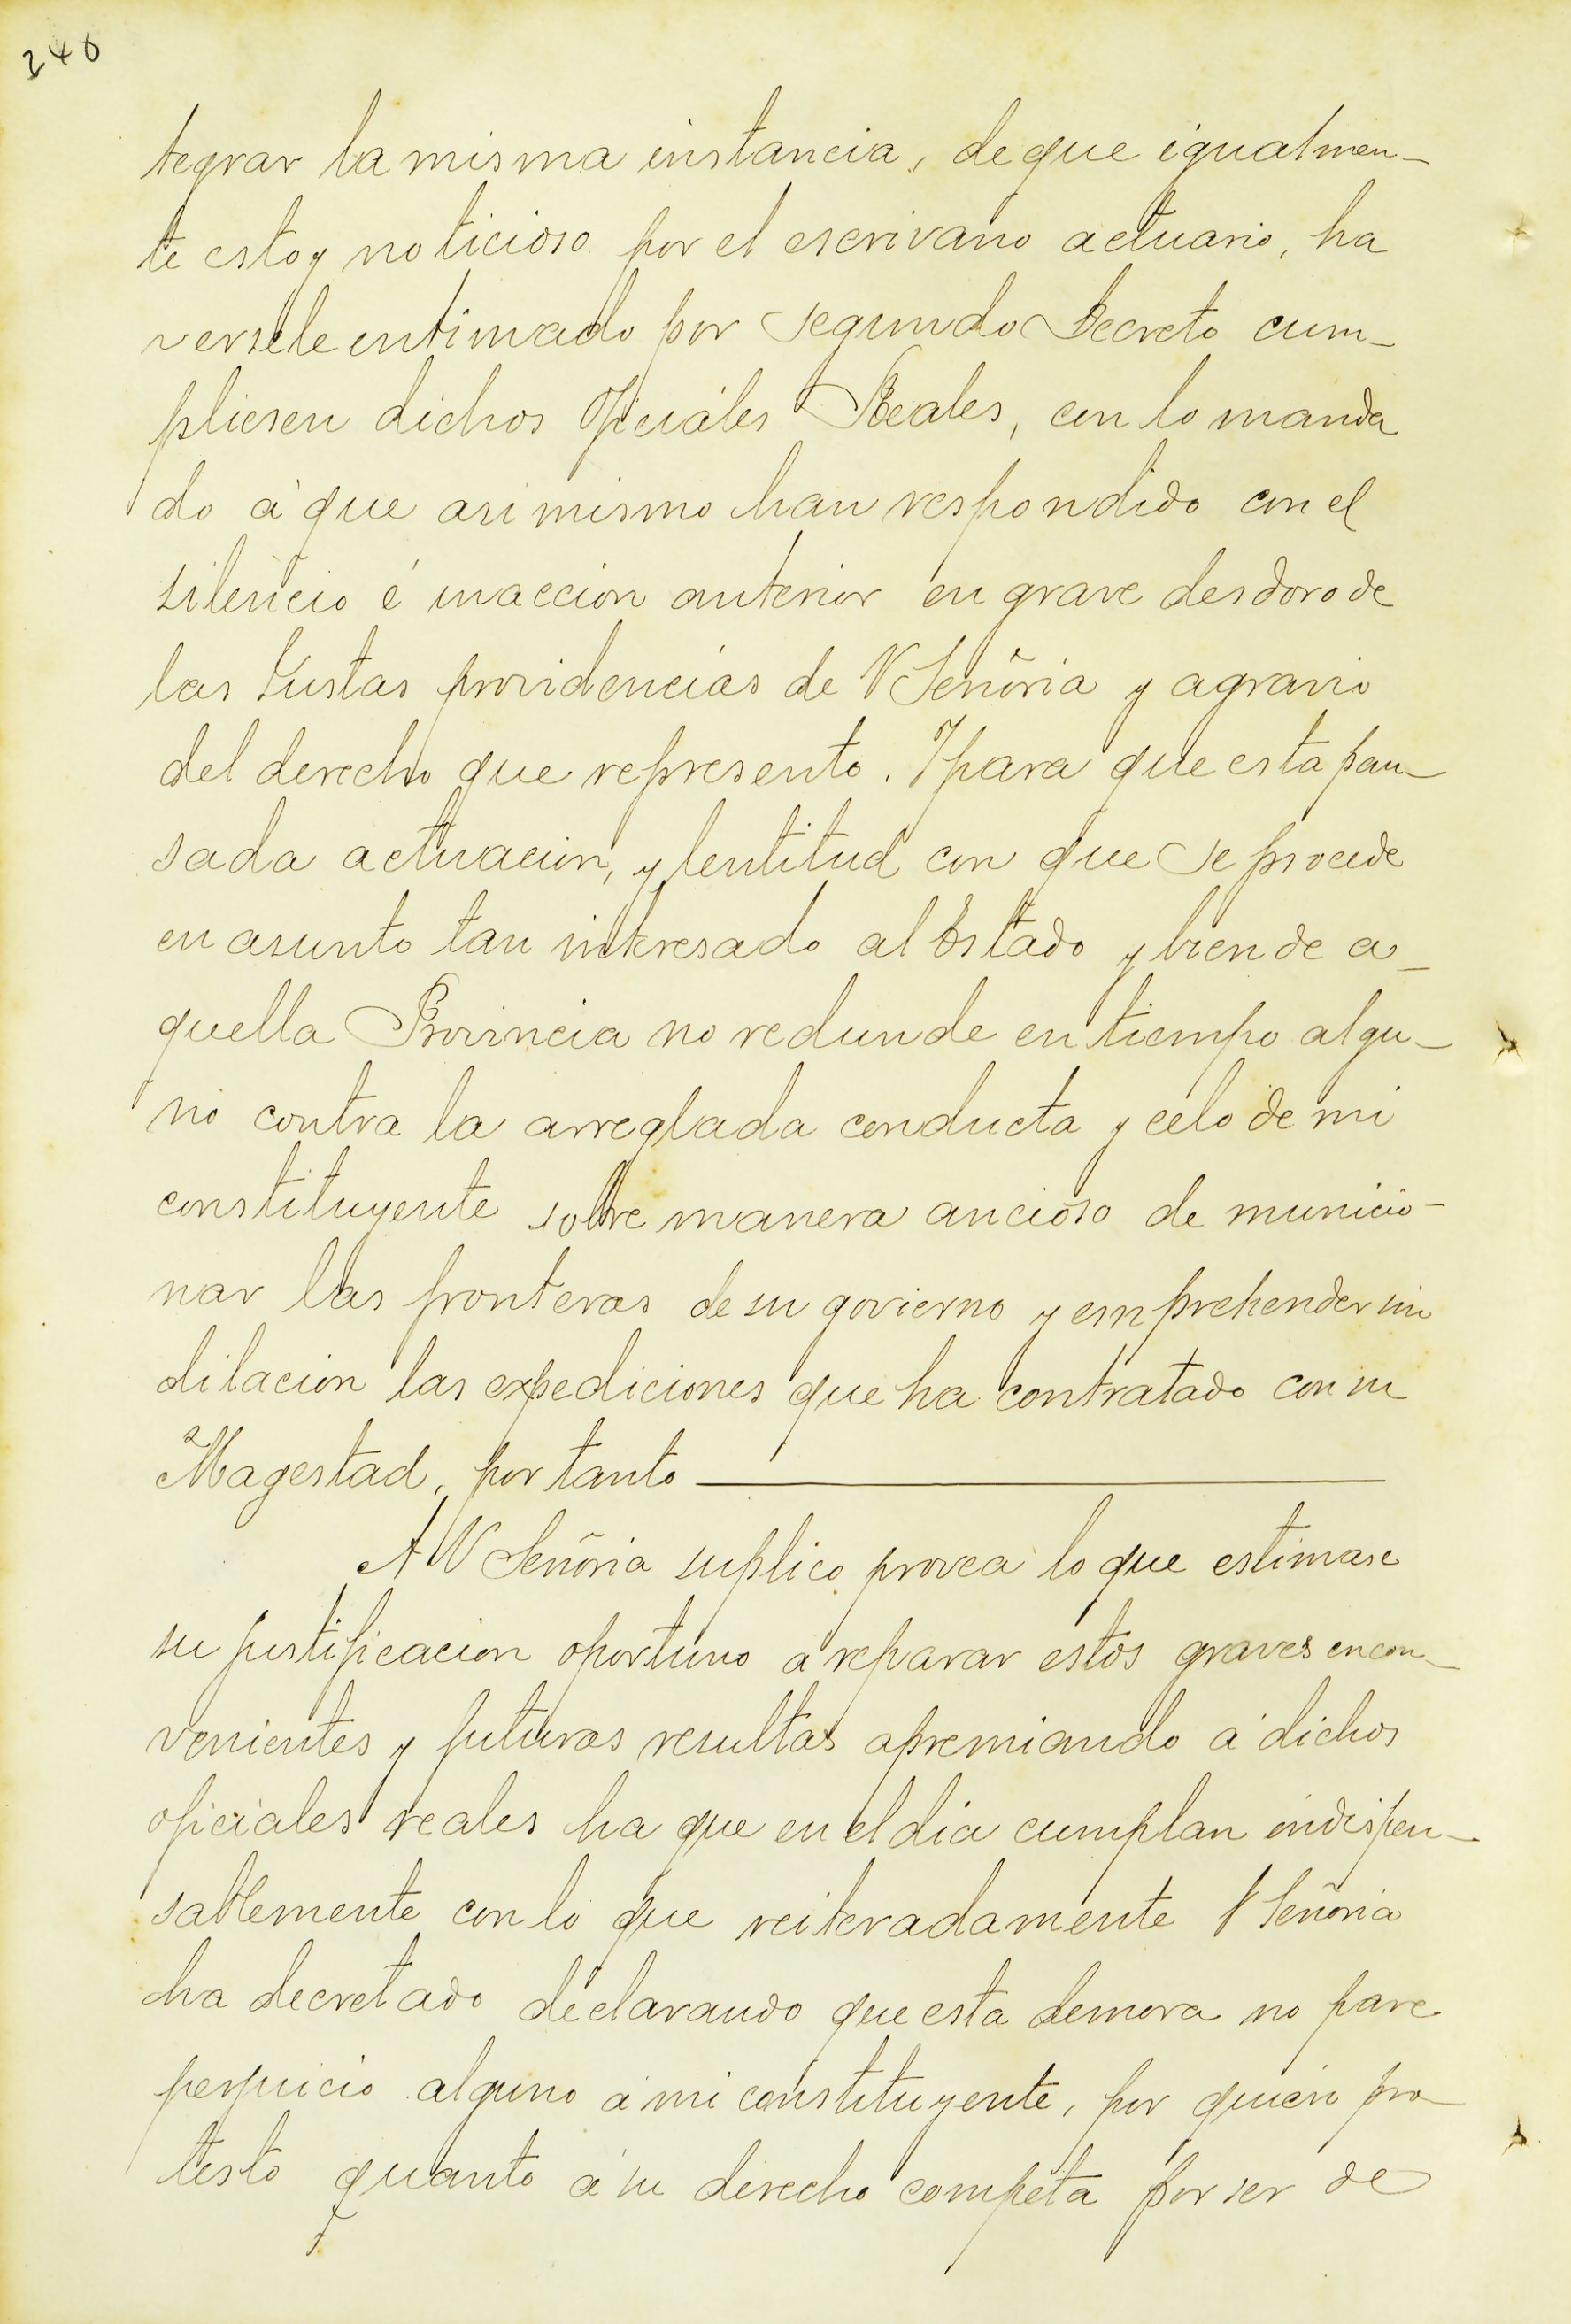 246
tegrar la misma instancia, de que igualmen-
te estoy noticioso por el escrivano actuario, ha
versele intimado por segundo Decreto cum-
pliesen dichos Oficiales Reales, con lo manda
do á que asi mismo han respondido con el
silencio é inaccion anterior en grave desdoro de
las Justas providencias de V Señoria y agravio
del derecho que represento. Y para que esta pau-
sada actuacion, y lentitud con que se procede
en asunto tan interesado al Estado y bien de a-
quella Provincia no redunde en tiempo algu-
no contra la arreglada conducta y celo de mi
constituyente sobre manera ancioso de municio-
nar las fronteras de su govierno y emprehender sin
dilacion las expediciones que ha contratado con su
Magestad, por tanto
A V Señoria suplico provea lo que estimase
su justificacion oportuno a reparar estos graves encon-
venientes y futuras resultas apremiando á dichos
oficiales reales ha que en el dia cumplan indispen-
sablemente con lo que reiteradamente V Señoria
ha decretado declarando que esta demora no pare
perjuicio alguno á mi constituyente, por quien pro-
testo quanto á su derecho competa por ser de